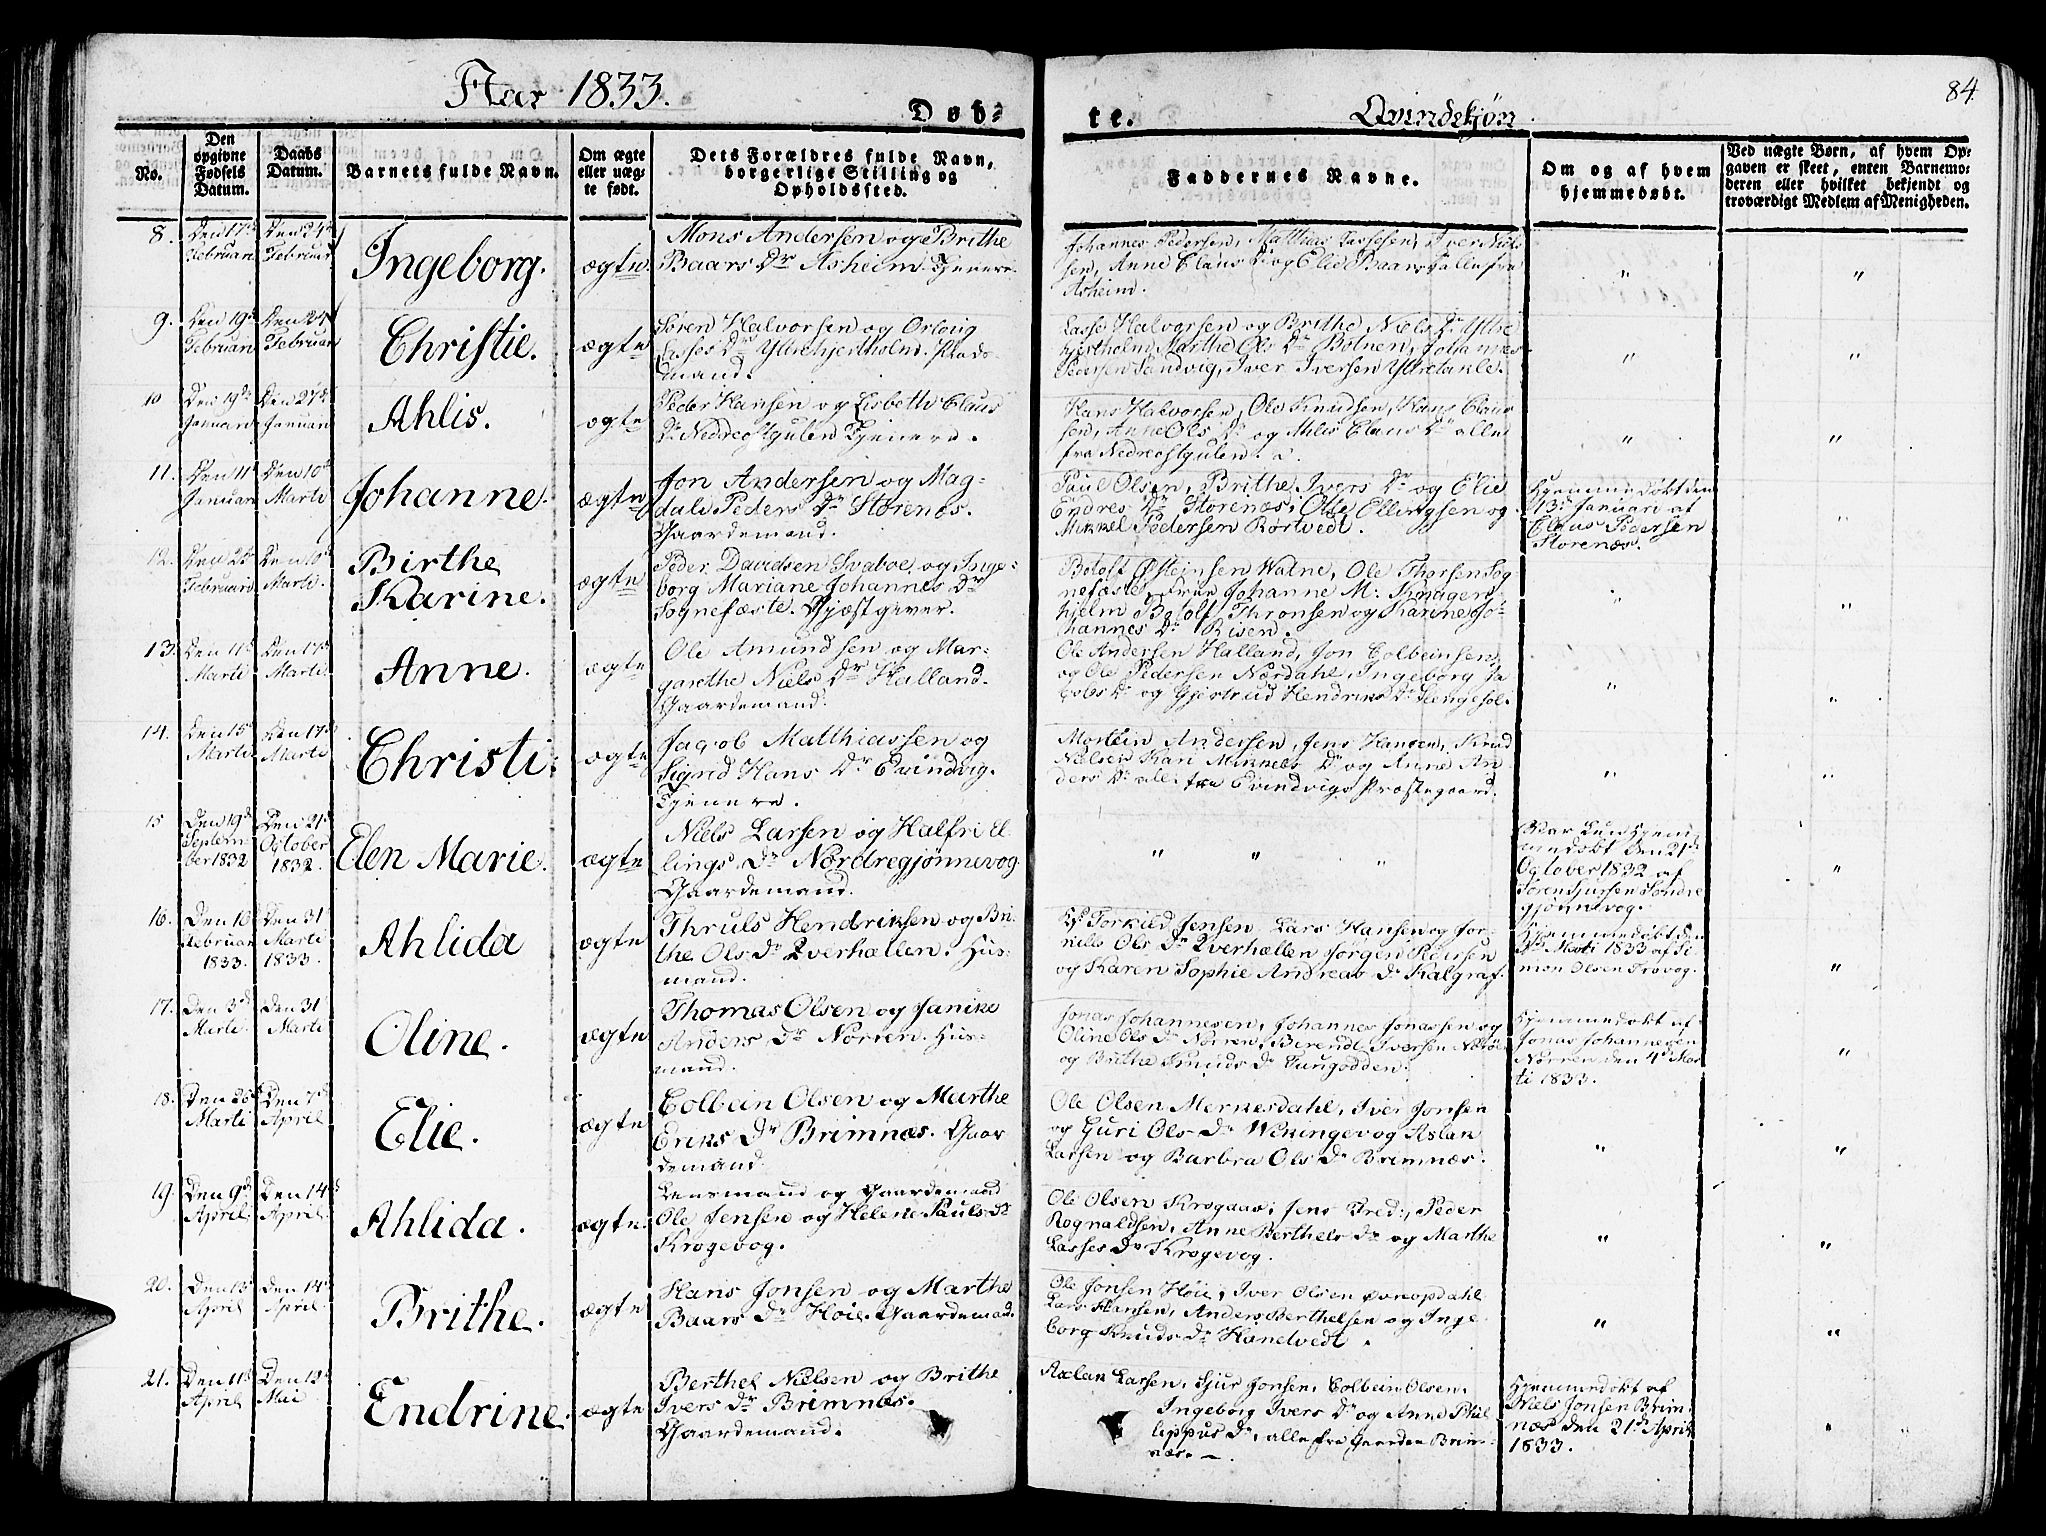 Aar 1833.
Døb=
te.
Qvindekjøn.
84
No.
Den opgivne Fødsels Datum.
Daabs Datum.
Barnets fulde Navn.
Om ægte eller uæg-te født.
Dets Forældres fulde Navn, borgerlige Stilling og Opholdssted.
Faddernes Navne.
Om og af hvem hjemmedøbt.
Ved uægte Børn, af hvem Op-gaven er skeet, enten Barnemo-deren eller hvilket bekjendt og troværdigt Medlem af Menigheden.
8.
Den 17de Februari
Den 24de Februari
Ingeborg.
ægte
Mons Andersen og Brithe
Baars Dr Asheim. Tjenere.
Johannes Pedersen, Matthias Lassesen, Iver Niel-
sen, Anne Claus Dr og Elie Baars Dr alle fra
Asheim.
"
"
9.
Den 19de Februari
Den 24de Februari
Christie.
ægte
Søren Halvorsen og Orloug
Lasses Dr Ytrehjertholm. Plads-
mand.
Lasse Halvorsen og Brithe Niels Dr Ytre
hjertholm, Marthe Ols Dr Botnen, Johannes
Pedersen Sandvig, Iver Iversen Ytretakle.
"
"
10
Den 19de Januari
Den 27de Januari
Ahlis.
ægte
Peder Hansen og Lisbeth Claus
Dr Nedreostgulen Tjenere.
Hans Halvorsen, Ole Knudsen, Hans Claus
sen, Anne Ols Dr og Ahlis Claus Dr alle
fra Nedreostgulen.
"
"
11.
Den 11te Januari
Den 10de Marti
Johanne.
ægte
Jon Andersen og Mag-
dali Peders Dr Storenæs.
Gaardemand.
Paul Olsen, Brithe Ivers Dr og Elie
Endres Dr Storenæs, Otte Ellingsen og
Mikkel Pedersen Rørtvedt.
Hjemmedøbt den
13de Januari af
Claus Pedersen
Storenæs.
"
12.
Februari
Den 10de Marti.
Birthe
Karine.
ægte
Peder Davidsen Svaboe og Inge-
borg Mariane Johannes Dr
Sognefæste. Gjæstgiver.
Botolf Østeinsen Watne, Ole Thorsen Sog
nefæste, Frue Johanne M: Knagen-
hjelm Botolf Thronsen og Karine Jo-
hannes Dr Risen.
"
"
13.
Den 11te Marti
Den 17de Marti.
Anne.
ægte
Ole Amundsen og Mar-
garethe Niels Dr Halland.
Gaardemand.
Ole Andersen Halland, Jon Colbeinsen,
og Ole Pedersen Nordahl, Ingeborg Ja
cobs Dr og Gjertrud Hendriks Dr
"
"
14.
Den 15de Marti
Den 17de Marti
Christi.
ægte
Jacob Matthiassen og
Sigrid Hans Dr Evindvig.
Tjenere.
Mortein Andersen, Jens Hansen, Knud
Nielsen Kari Mikkels Dr og Anne An
ders Dr alle fra Evindvigs Præstegaard.
"
"
15
Den 19de Septem-
ber 1832
Den 21de October
1832.
Elen Marie.
ægte
Niels Larsen og Halfri El
lings Dr Nordregjønnevog
Gaardemand.
"
"
"
Var kun hjem-
medøbt den 21de
October 1832 af
Søren Sjursen Søndre
gjønnevog.
"
16.
Februari
1833.
Den 31 Marti
1833.
Ahlida
ægte
Thruls Hendriksen og Bri-
the Ols Dr Tverhællen. Hus-
mand.
Torkild Jensen, Lars Hansen og
Ols Dr Tverhællen Jørgen
og Karen Sophie Andreas Dr Kalgraf.
Hjemmedøbt den
Marti 1833 af Si-
mon Olsen Trovog.
"
17.
Den 3de Marti.
Den 31 Marti
Oline.
ægte
Thomas Olsen og Janike
Anders Dr Norren. Hus-
mand.
Jonas Johannesen, Johannes Jonassen og
Oline Ols Dr Norren, Berendt Iversen
og Brithe Knuds Dr
Hjemmedøbt af
Jonas Johannesen
Norren den 4de Mar
ti 1833.
"
18.
Marti
Den 7de April
Elie.
ægte
Colbein Olsen og Marthe
Eriks Dr Brimnæs. Gaar
demand.
Ole Olsen Mernesdahl, Iver Jonsen
og Guri Ols Dr Wikingevog Aslan
Larsen og Barbra Ols Dr Brimnæs.
"
"
19.
Den 9de April,
Den 14de April.
Ahlida.
ægte.
Lensmand og Gaardemand
Ole Jensen og Helene Pauls Dr
Krogevog.
Ole Olsen Krogaas, Jens Fred:, Peder
Rognaldsen, Anne Berthels Dr og Marthe
Lasses Dr Krogevog.
"
"
20.
Den 13de April
Den 14de April.
Brithe.
ægte
Hans Jonsen og Marthe
Baars Dr Høie. Gaardemad.
Ole Jonsen Høie, Iver Olsen
Lars Hansen, Anders Berthelsen og Inge
borg Knuds Dr Hanetvedt.
"
"
21.
Den 11te April
Den 12te Mai
Endrine.
ægte
Berthel Nielsen og Brithe
Ivers Dr Brimnæs.
Gaardemand.
Axlan Larsen, Sjur Jonsen, Colbein Olsen,
Ingeborg Ivers Dr og Anne Phil
lippus Dr, alle fra Gaarden Brim-
næs. —
Hjemmedøbt af
Niels Jonsen Brim
næs den 21de April
1833.
"